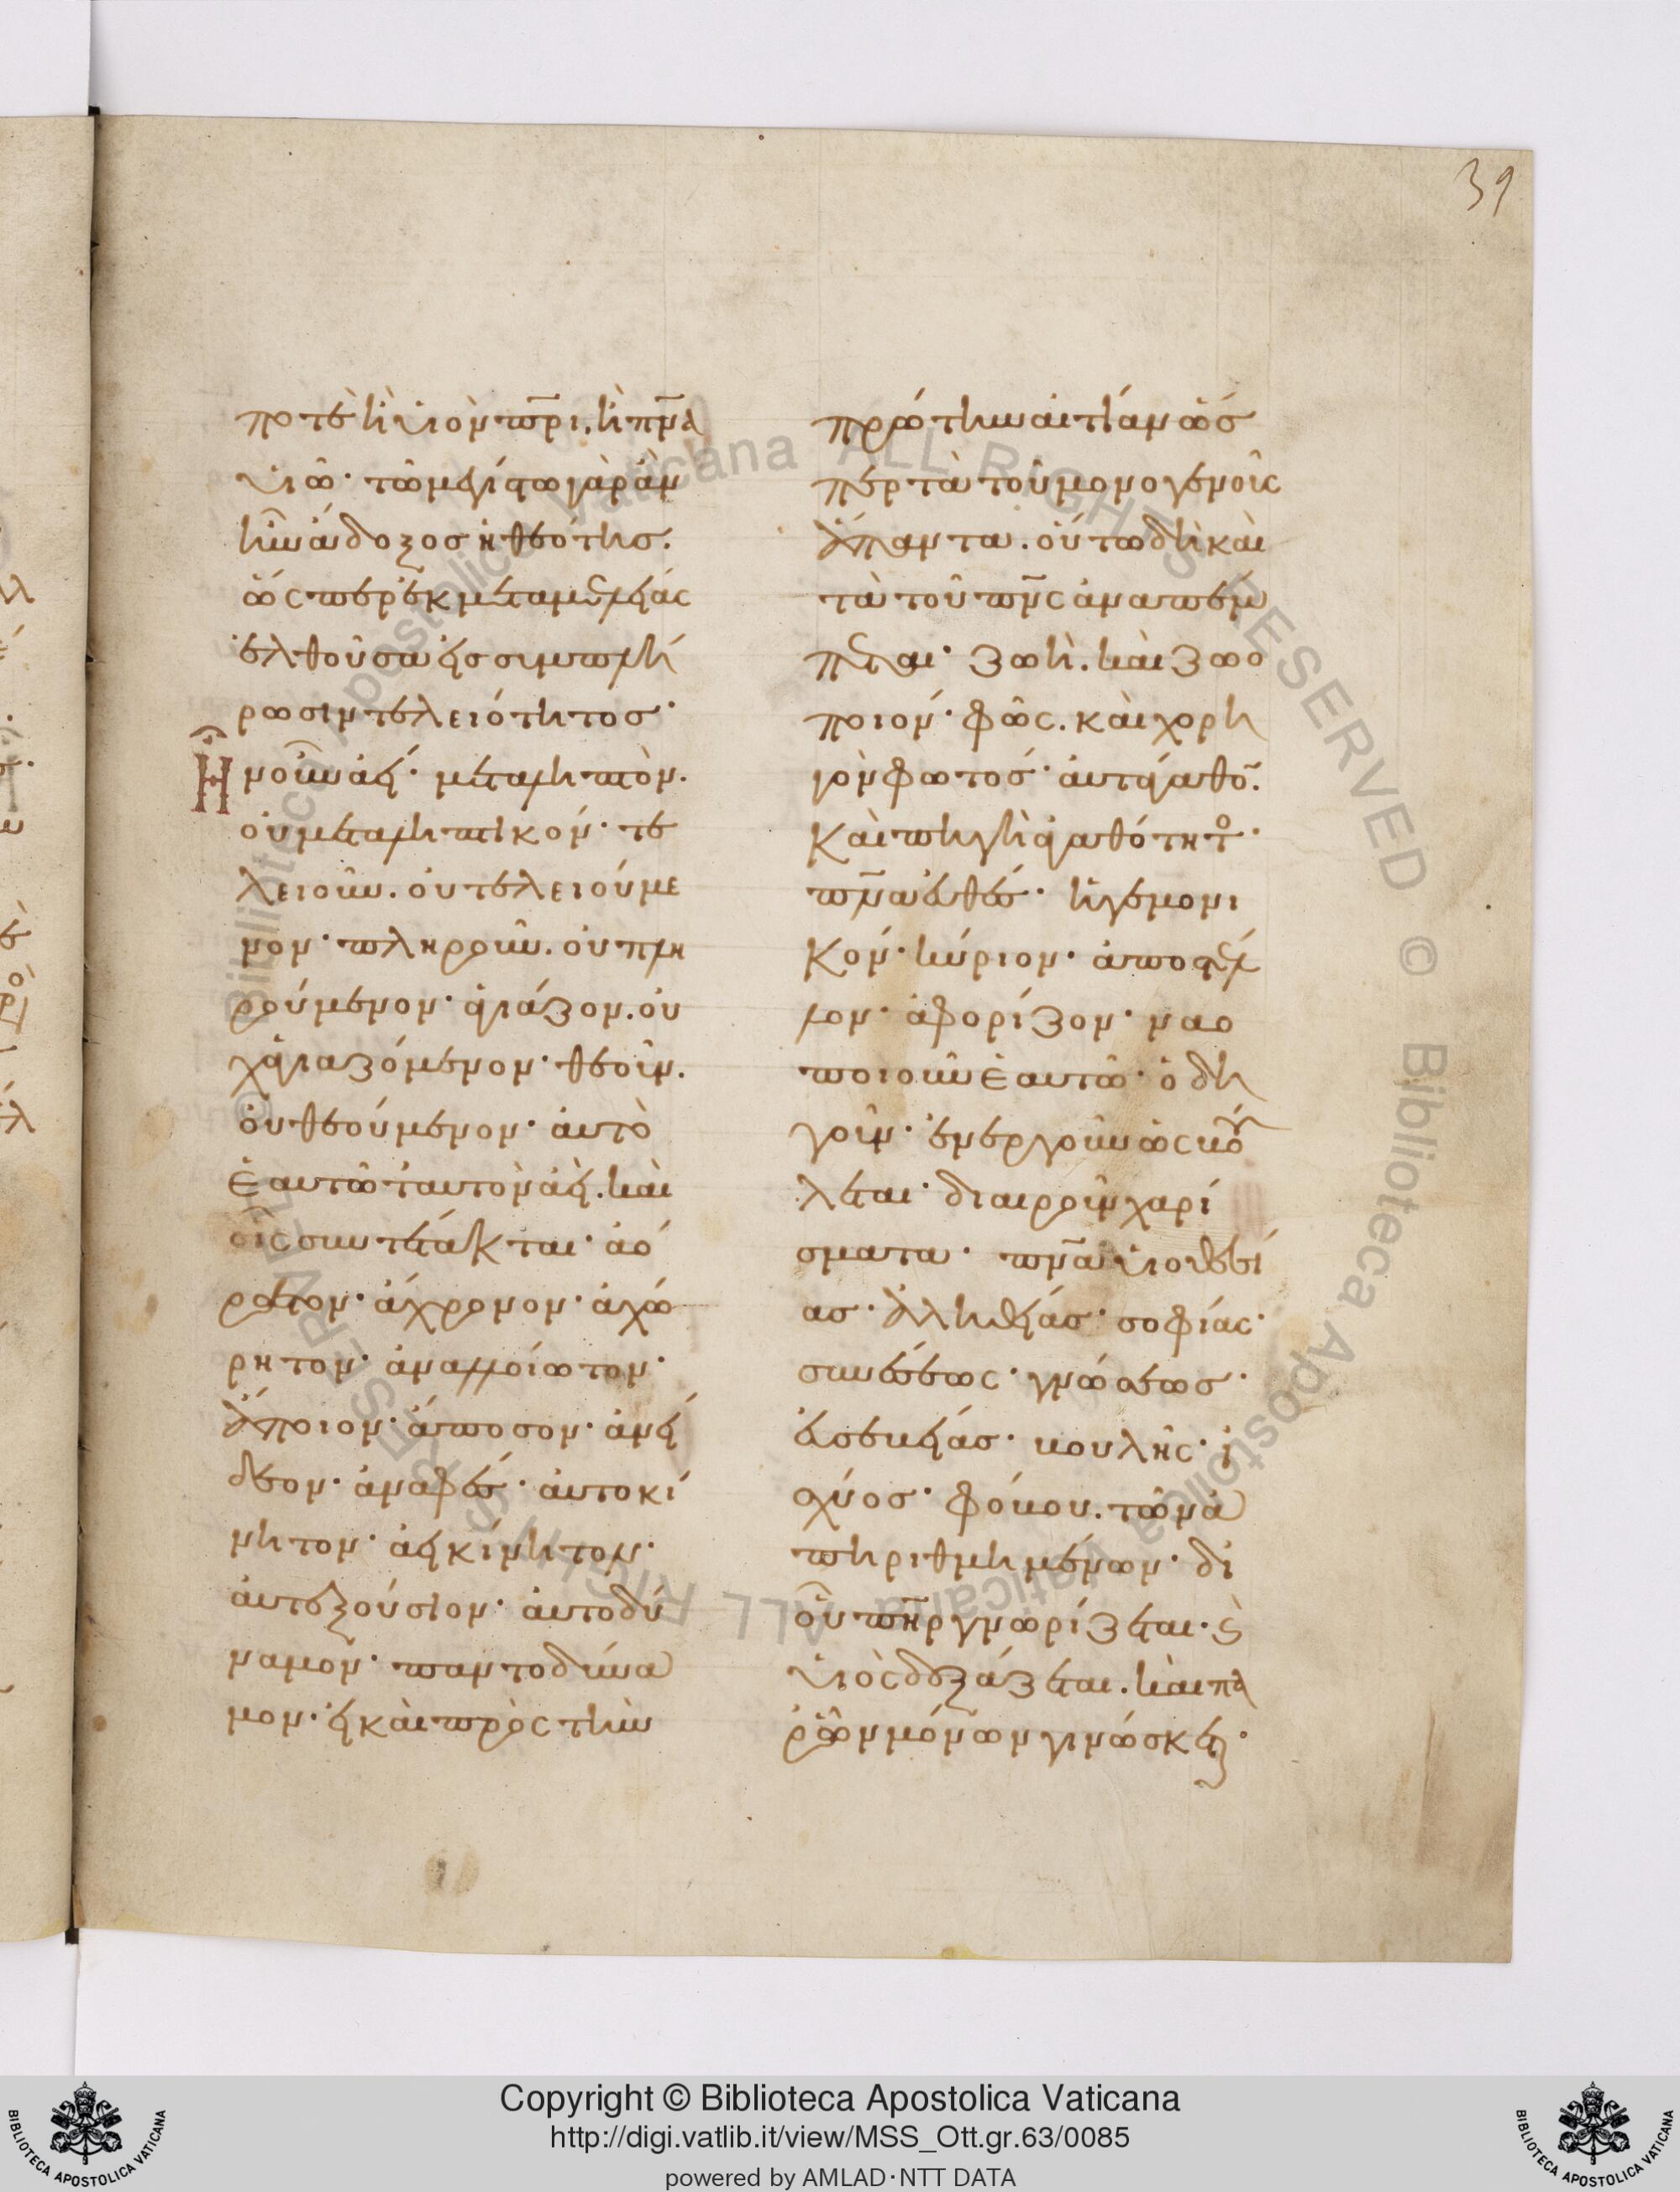 39
ποτὲ ἢ υἱὸν π̅ρ̅ι, ἢ π̅ν̅α
υἱῶ· τῶ μεγίστω γὰρ ἂν
ἦν ἄδοξος ἡ θεότης.
ὥσπερ ἐκ μεταμελείας
ἐλθοῦσα εἰς συμπλή
ρωσιν τελειότητος·
Ἦν οὖν ἀεί· μεταληπτὸν.
οὐ μεταληπτικόν· τε
λειοῦν. οὐ τελειούμε
νον· πληροῦν. οὐ πλη
ρούμενον· ἁγιάζον. οὐ
χ ἁγιαζόμενον· θεοῦν.
οὐ θεούμενον· αὐτὸ
ἑαυτῶ ταυτὸν ἀεὶ. καὶ
οἷς συντέτακται· ἀό
ρατον· ἄχρονον· ἀχώ
ρητον· ἀναλλοίωτον·
ἄποιον· ἄποσον· ἀνεί
δεον· ἀναφές· αὐτοκί
νητον· ἀεικίνητον·
αὐτεξούσιον· αὐτοδύ
ναμον· παντοδύνα
μον· εἰ καὶ πρὸς τὴν
πρώτην αἰτίαν ὥσ
περ τὰ τοῦ μονογενοῦς
ἅπαντα. οὕτω δὴ καὶ
τὰ τοῦ π̅ν̅ς ἀναπέμ
πεται· ζωὴ. καὶ ζωο
ποιόν· φῶς. καὶ χορη
γὸν φωτός· αὐτάγαθο̅.
καὶ πηγὴ ἀγαθότητο·
π̅ν̅α εὐθές· ἡγεμονι
κόν· κύριον· ἀποστέλ
λον· ἀφορίζον· ναο
ποιοῦν ἑαυτῶ· ὁδη
γοῦν· ἐνεργοῦν ὡς βού
λεται· διαιροῦν χαρί
σματα· π̅ν̅α υἱοθεσί
ας· ἀληθείας· σοφίας·
συνέσεως· γνώσεως·
εὐσεβείας· βουλῆς· ἰ
σχύος· φόβου. τῶν ἀ
πηριθμημένων· δι
οὗ π̅η̅ρ γνωρίζεται· καὶ
υἱὸς δοξάζεται. καὶ πα
ρ ὧν μόνων γινώσκετ·
Copyright © Biblioteca Apostolica Vaticana
http://digi.vatlib.it/view/MSS_Ott.gr.63/0085
powered by AMLAD·NTT DATA
BIBLIOTECA APOSTOLICA VATICANA
BIBLIOTECA APOSTOLICA VATICANA
© Biblioteca Apostolica Vaticana ALL RIGHTS RESERVED © Biblioteca Apostolica Vaticana ALL RIGHTS RESERVED